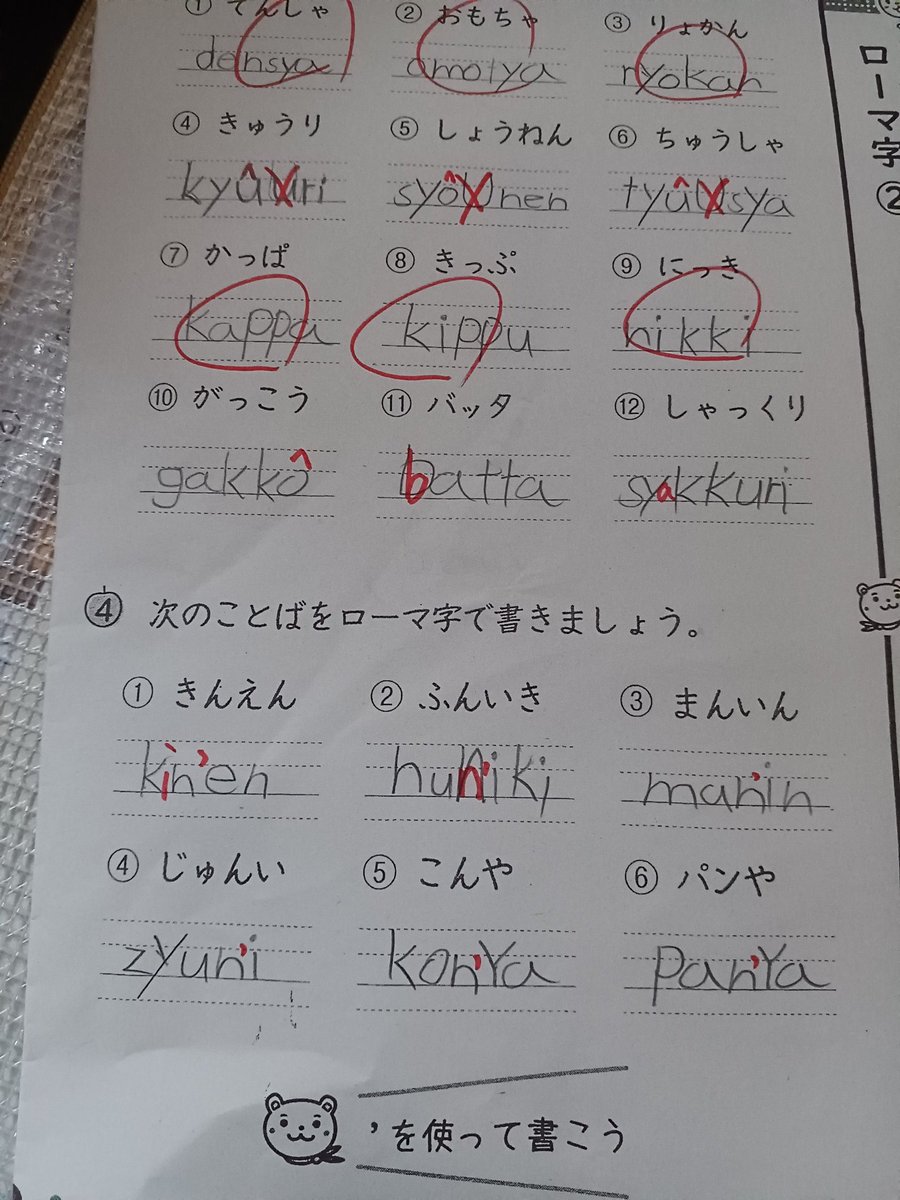 ① でんしゃ ② おもちゃ ③ りょかん
densya omotya ryokan
④ きゅうり ⑤ しょうねん ⑥ ちゅうしゃ
kyûuri syôunen tyûusya
⑦ かっぱ ⑧ きっぷ ⑨ にっき
kappa kippu nikki
⑩ がっこう ⑪ バッタ ⑫ しゃっくり
gakkô batta syakkuri
④ 次のことばをローマ字で書きましょう。
① きんえん ② ふんいき ③ まんいん
kin'en hun'iki man'in
④ じゅんい ⑤ こんや ⑥ パンや
zyun'i kon'Ya pan'Ya
’を使って書こう
ローマ字②